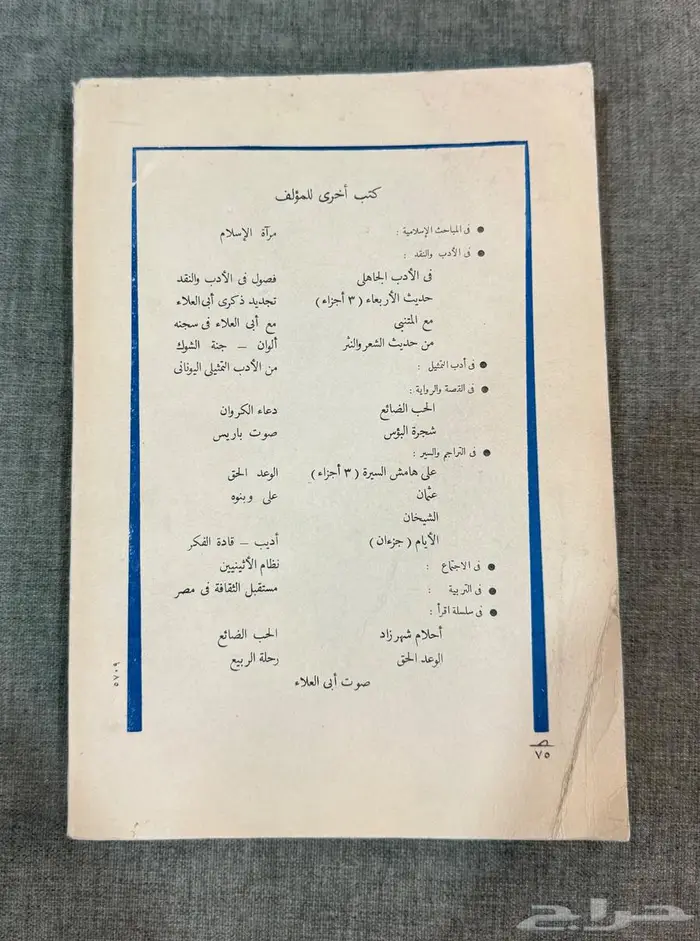 كتب أخرى للمؤلف
● فى المباحث الإسلامية : مرآة الإسلام
● فى الأدب والنقد :
فى الأدب الجاهلى فصول فى الأدب والنقد
حديث الأربعاء ( ٣ أجزاء ) تجديد ذكرى أبى العلاء
مع المتنبى مع أبى العلاء فى سجنه
من حديث الشعر والنثر ألوان – جنة الشوك
● فى أدب التمثيل : من الأدب التمثيلى اليونانى
● فى القصة والرواية :
الحب الضائع دعاء الكروان
شجرة البؤس صوت باريس
● فى التراجم والسير :
على هامش السيرة ( ٣ أجزاء ) الوعد الحق
عثمان على وبنوه
الشيخان
الأيام ( جزءان ) أديب – قادة الفكر
● فى الاجتماع : نظام الأثينيين
● فى التربية : مستقبل الثقافة فى مصر
● فى سلسلة اقرأ :
أحلام شهرزاد الحب الضائع
الوعد الحق رحلة الربيع
صوت أبى العلاء
٥٧٠٩
٧٥
حراج